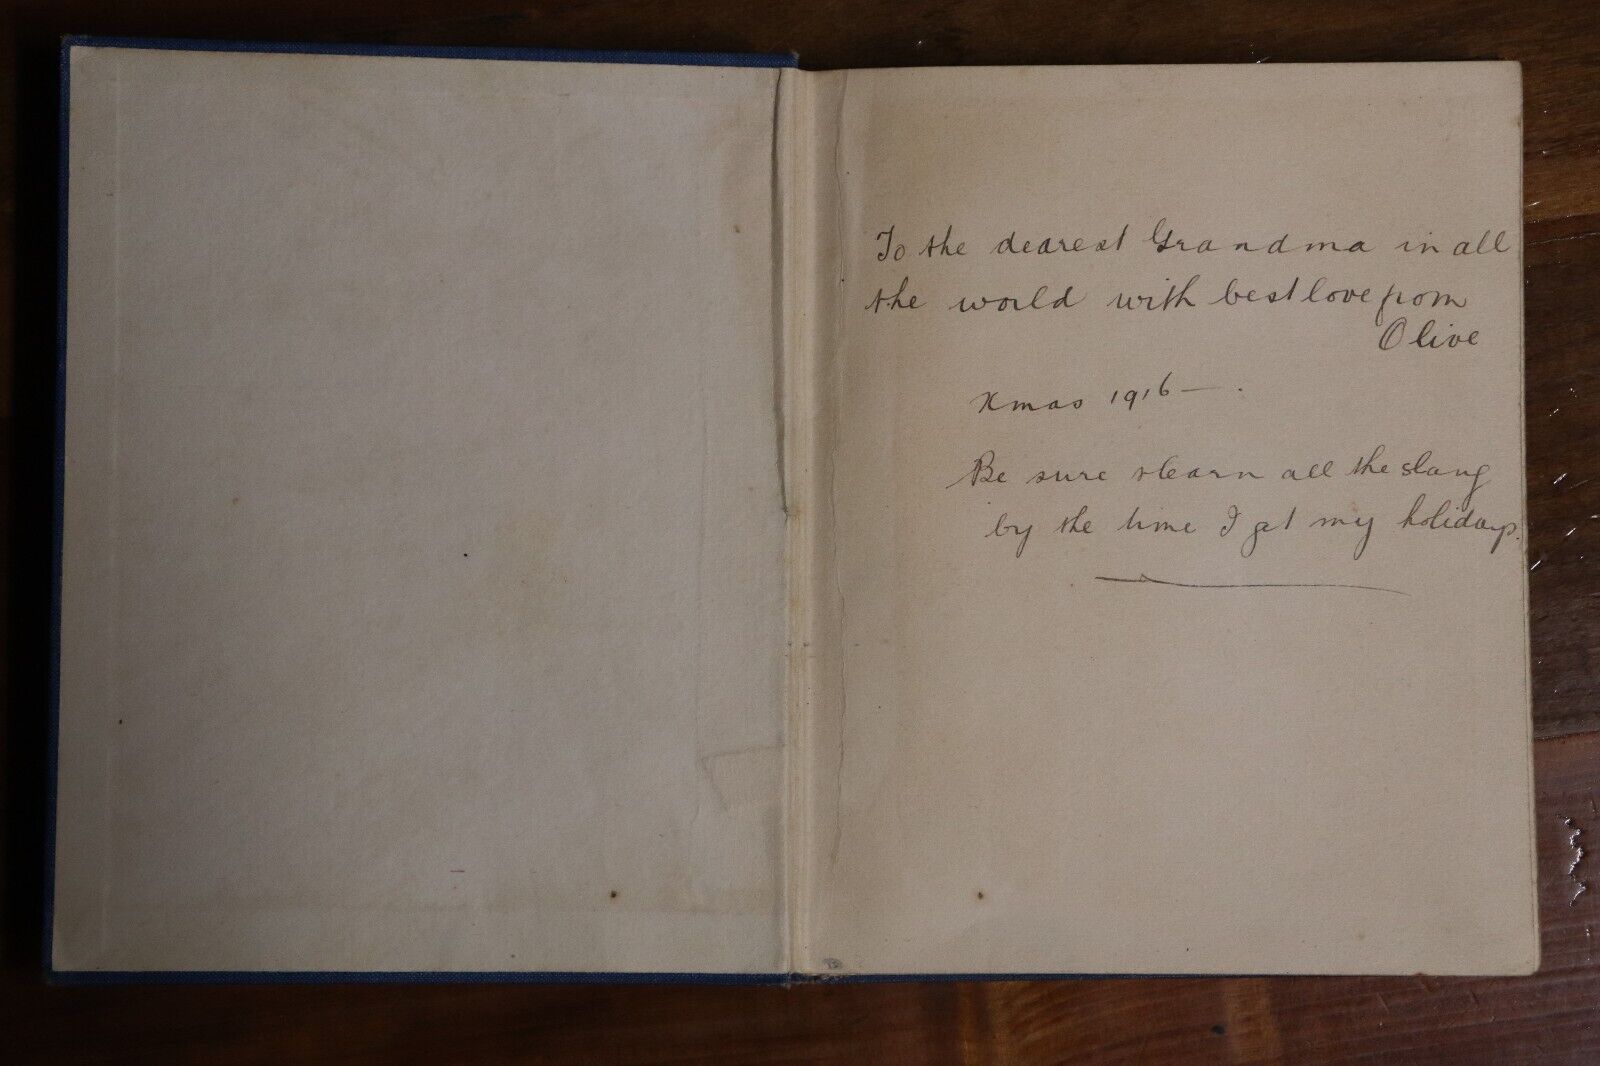 To the dearest Grandma in all
the world with best love from
Olive
Xmas 1916 — .
Be sure & learn all the slang
by the time I get my holidays.